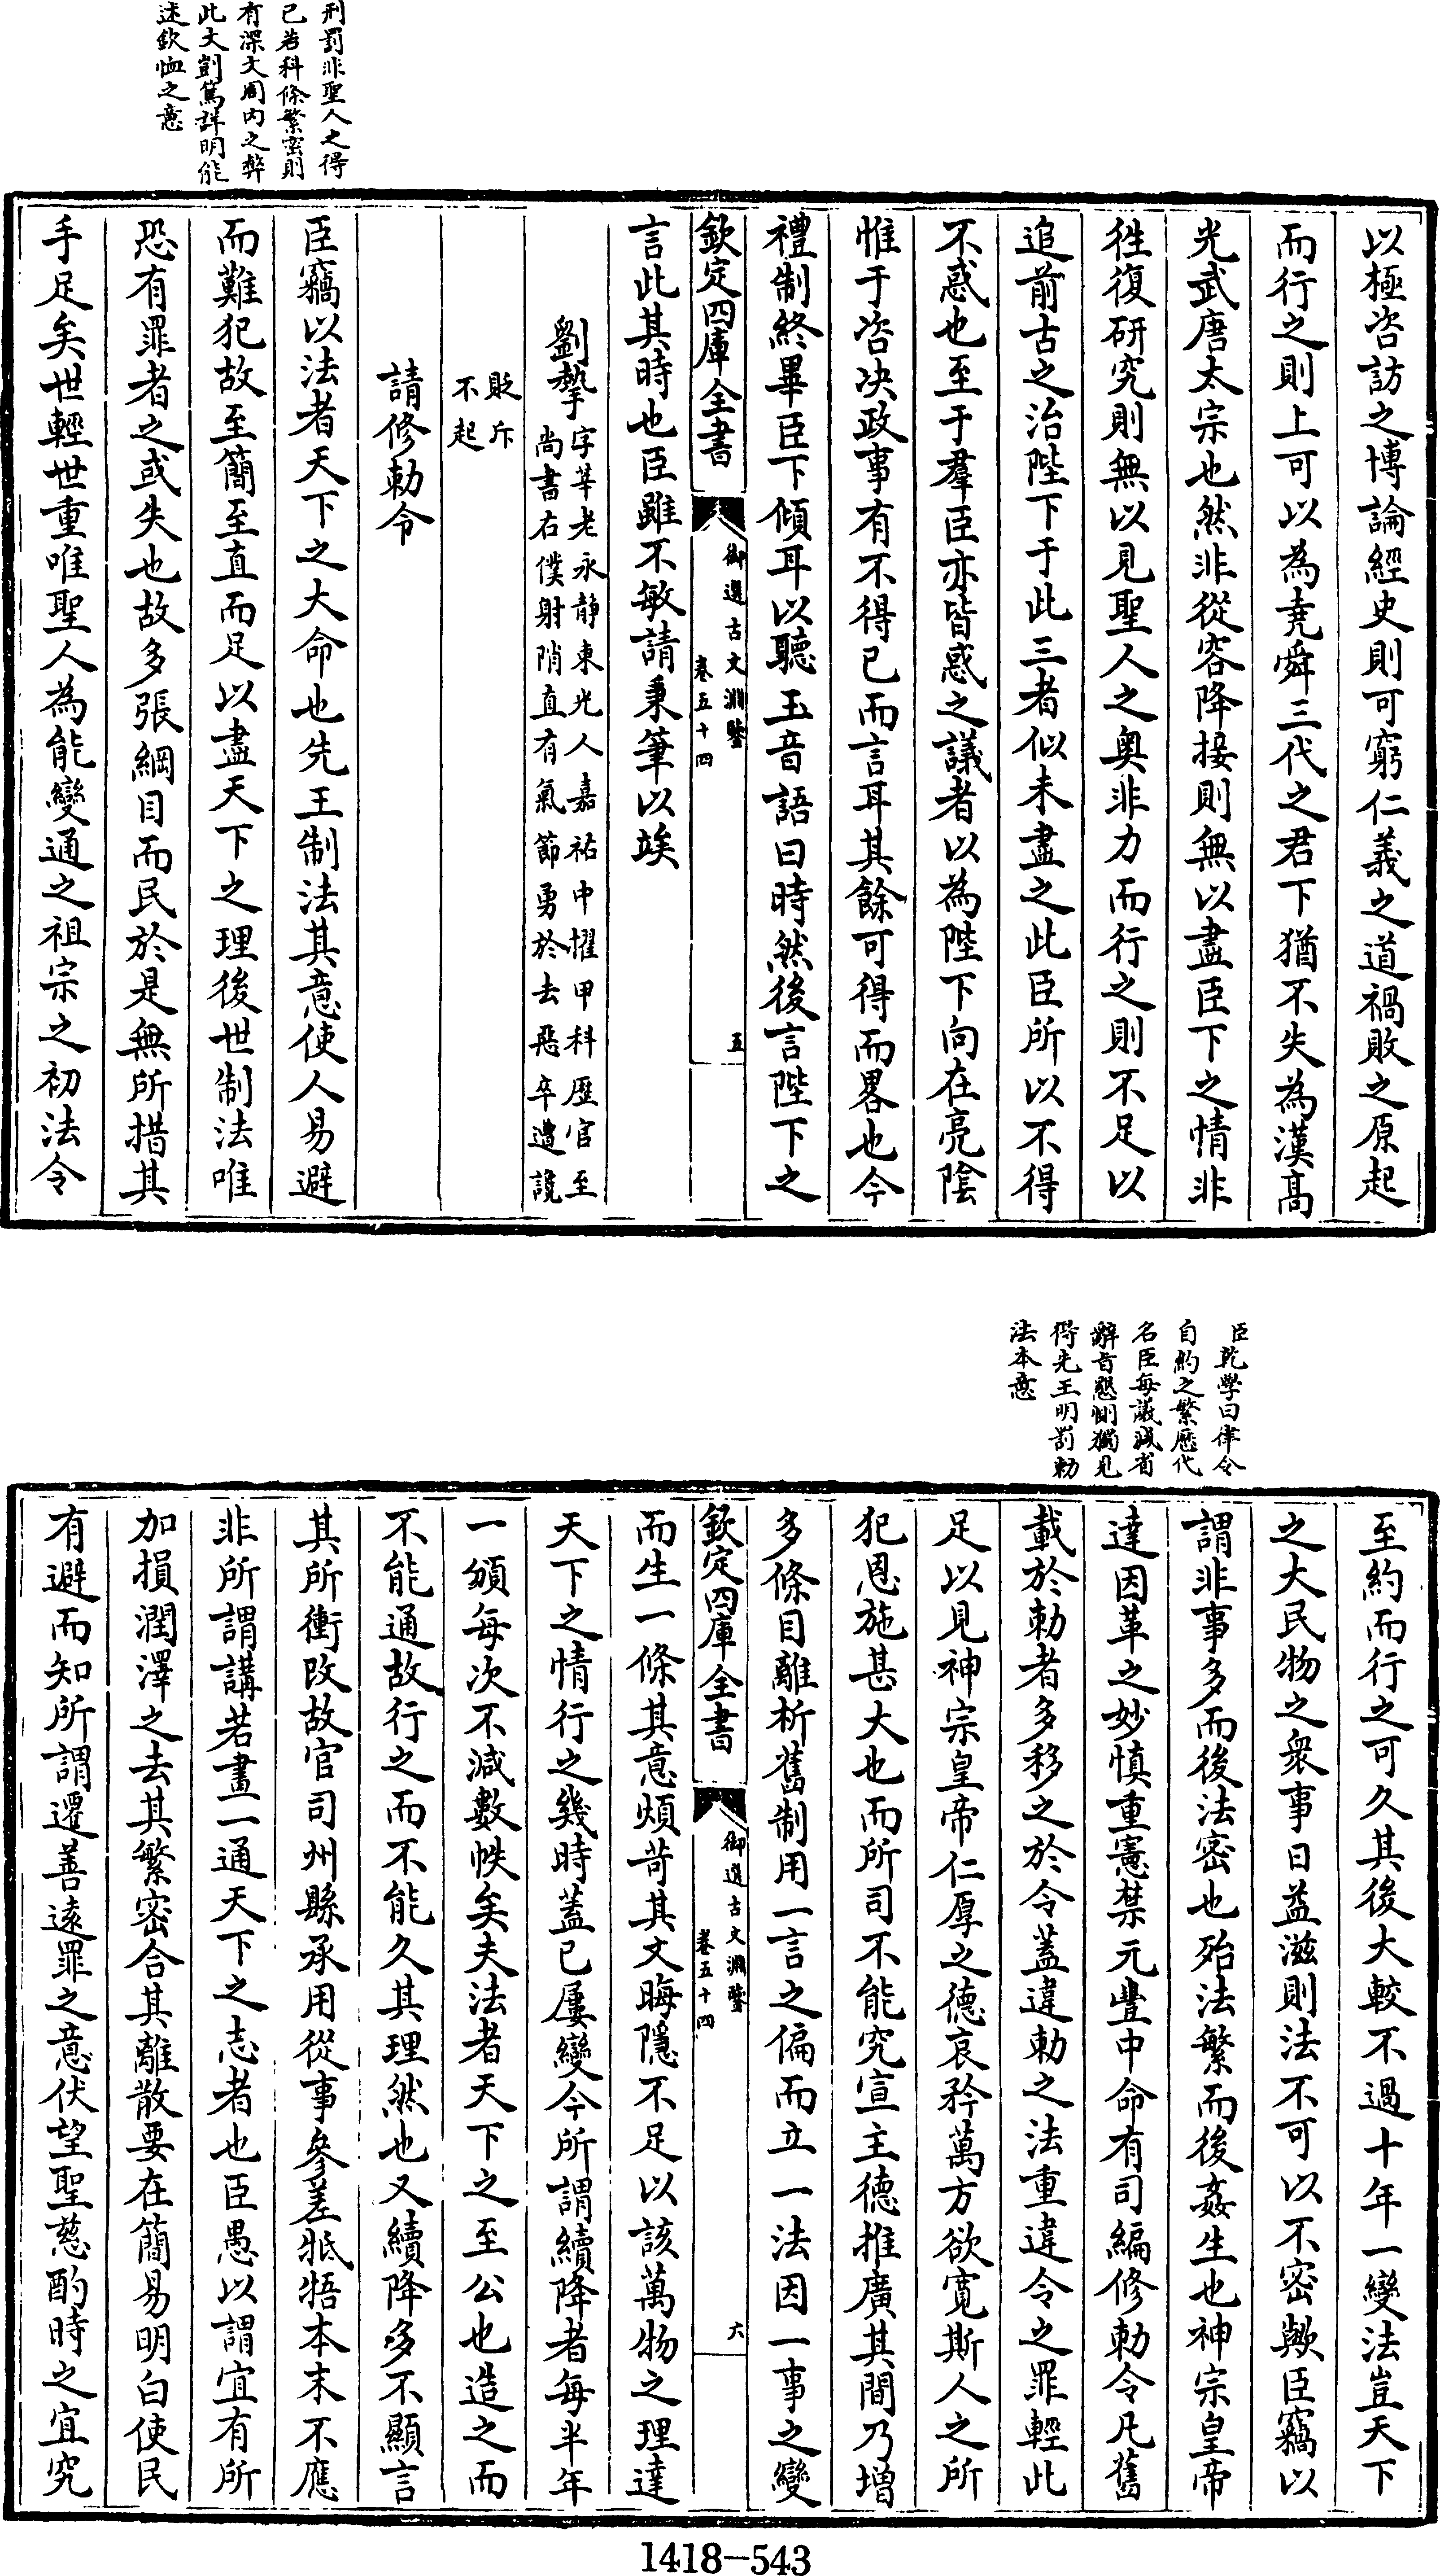 刑罰非聖人之得
已若科條繁密則
有深文周内之弊
此文剴篤詳明能
述欽恤之意
以極咨訪之博論經史則可窮仁義之道禍敗之原起
而行之則上可以為堯舜三代之君下猶不失為漢高
光武唐太宗也然非從容降接則無以盡臣下之情非
往復研究則無以見聖人之奥非力而行之則不足以
追前古之治陛下于此三者似未盡之此臣所以不得
不惑也至于羣臣亦皆惑之議者以為陛下向在亮陰
惟于咨决政事有不得已而言耳其餘可得而畧也今
禮制終畢臣下傾耳以聽玉音語曰時然後言陛下之
欽定四庫全書
御選古文淵鑒
卷五十四
五
言此其時也臣雖不敏請秉筆以竢
劉摯
字莘老永静東光人嘉祐中擢甲科歴官至
尚書右僕射陗直有氣節勇於去惡卒遭䜛
貶斥
不起
請修勅令
臣竊以法者天下之大命也先王制法其意使人易避
而難犯故至簡至直而足以盡天下之理後世制法唯
恐有罪者之或失也故多張綱目而民於是無所措其
手足矣世輕世重唯聖人為能變通之祖宗之初法令
臣乾學曰律令
自約之繁歴代
名臣每議減省
辭㫖懇惻獨見
得先王明罰勅
法本意
至約而行之可久其後大較不過十年一變法豈天下
之大民物之衆事日益滋則法不可以不密歟臣竊以
謂非事多而後法密也殆法繁而後姦生也神宗皇帝
達因革之妙慎重憲禁元豐中命有司編修勅令凡舊
載於勅者多移之於令蓋違勅之法重違令之罪輕此
足以見神宗皇帝仁厚之德哀矜萬方欲寛斯人之所
犯恩施甚大也而所司不能究宣主德推廣其間乃增
多條目離析舊制用一言之偏而立一法因一事之變
欽定四庫全書
御選古文淵鑒
卷五十四
六
而生一條其意煩苛其文晦隱不足以該萬物之理達
天下之情行之幾時蓋已屢變今所謂續降者每半年
一頒每次不減數帙矣夫法者天下之至公也造之而
不能通故行之而不能久其理然也又續降多不顯言
其所衝改故官司州縣承用從事參差牴牾本末不應
非所謂講若畫一通天下之志者也臣愚以謂宜有所
加損潤澤之去其繁密合其離散要在簡易明白使民
有避而知所謂遷善逺罪之意伏望聖慈酌時之宜究
1418-543